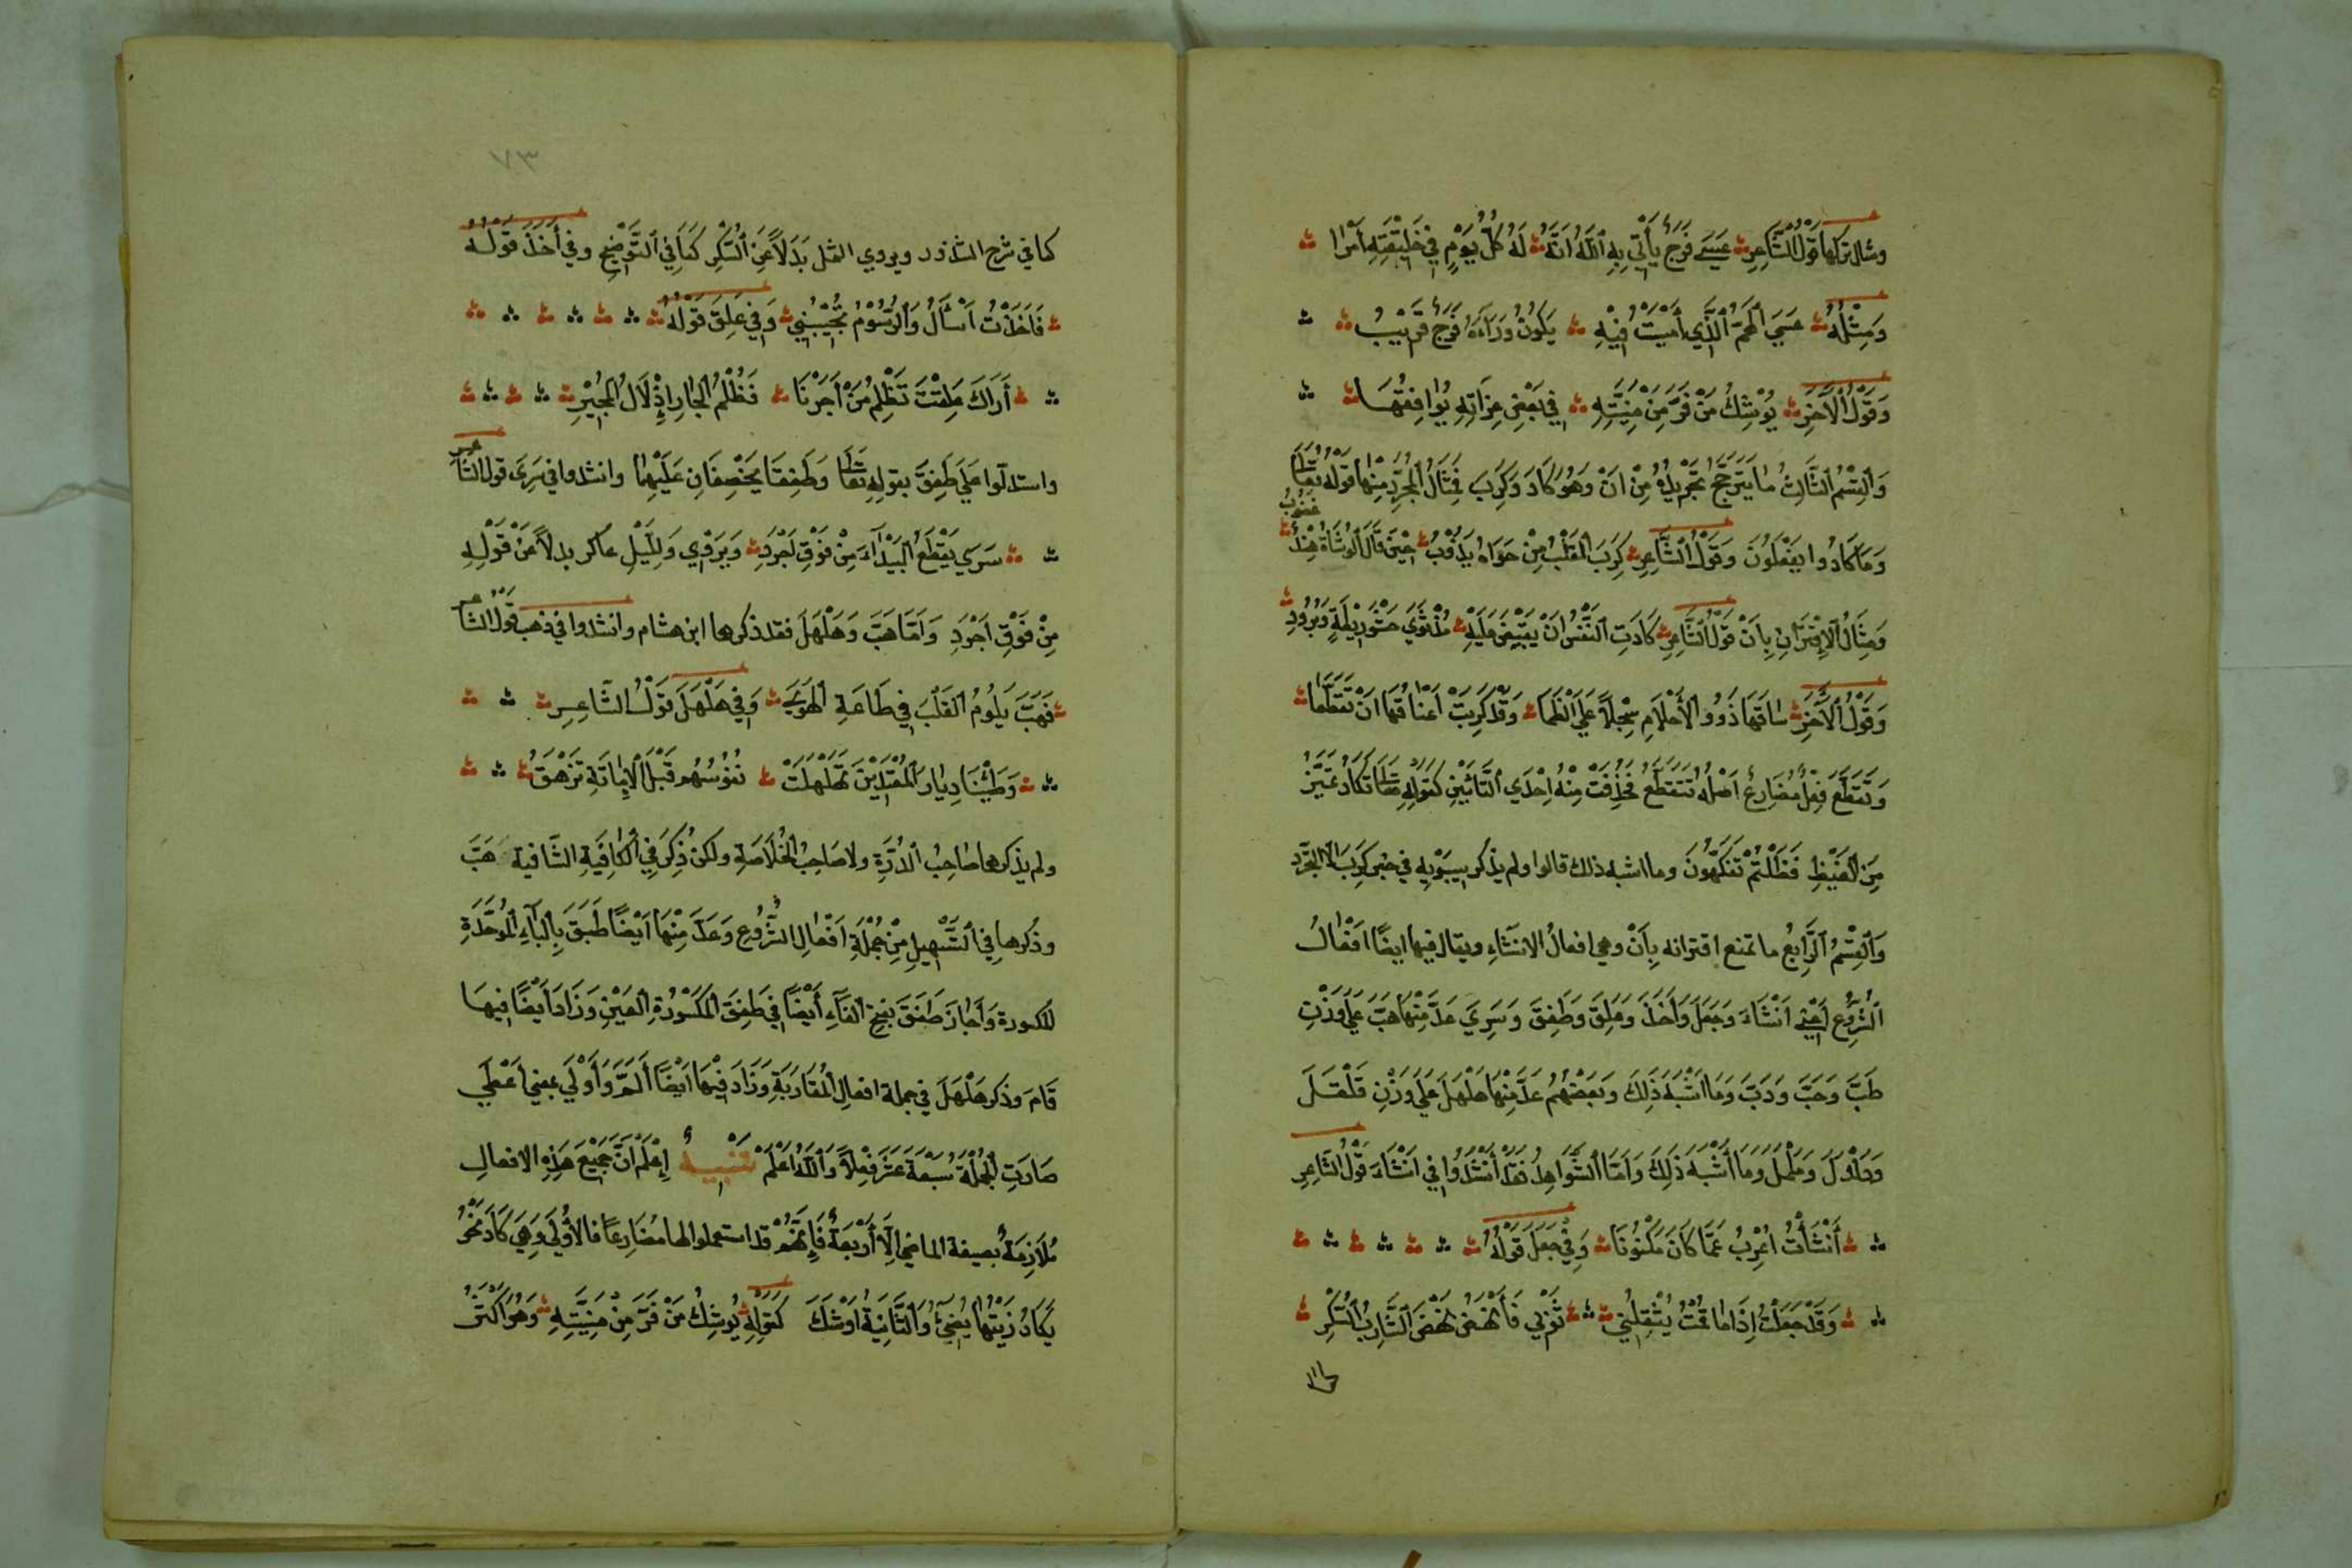 ومثال تركها قَوْلُ الشَّاعِرِ عَسَى فَرَجٌ يَأْتِي بِهِ اللَّهُ اِنَّهُ لَهُ كُلَّ يَوْمٍ فِي خَلِيقَتِهِ اَمْرًا
وَمِثْلُهُ عَسَى الْهَمُّ الَّذِي أَمْسَيْتُ فِيْهِ يَكُونُ وَرَاءَهُ فَرَجٌ قَرِيْبُ
وَقَوْلُ الْآخَرِ يُوْشِكُ مَنْ فَرَّ مِنْ مَنِيَّتِهِ فِي بَعْضِ غِرَّاتِهِ يُوَافِقُهَا
وَالْقِسْمُ الثَّالِثُ مَا يَتَرَجَّحُ تَجْرِيْدُهُ مِنْ اَنْ وَهُوَ كَادَ وَكَرَبَ فَمِثَالُ الْمُجَرَّدِ مِنْهَا قَوْلُهُ تَعَالَى
وَمَا كَادُوا يَفْعَلُونَ وَقَوْلُ الشَّاعِرِ كَرَبَ الْقَلْبُ مِنْ جَوَاهُ يَذُوْبُ حِيْنَ قَالَ الْوُشَاةُ هِنْدٌ غَضُوْبُ
وَمِثَالُ الْاِقْتِرَانِ بِاَنْ قَوْلُ الشَّاعِرِ كَادَتِ النَّفْسُ اَنْ تَفِيْضَ عَلَيْهِ مُذْ ثَوَى حَشْوَ رَيْطَةٍ وَبُرُودِ
وَقَوْلُ الْآخَرِ سَقَاهَا ذَوُو الْاَحْلَامِ سَجْلًا عَلَى الظَّمَا وَقَدْ كَرَبَتْ اَعْنَاقُهَا اَنْ تَقَطَّعَا
وَتَقَطَّعَ فِعْلٌ مُضَارِعٌ اَصْلُهُ تَتَقَطَّعُ فَحُذِفَتْ مِنْهُ اِحْدَى التَّائَيْنِ كَقَوْلِهِ تَعَالَى تَكَادُ تَمَيَّزُ
مِنَ الْغَيْظِ فَظَلْتُمْ تَفَكَّهُونَ وما اشبه ذلك قالوا ولم يذكر سِيْبَوَيْهِ في خبر كَرَبَ الا التجرد
وَالْقِسْمُ الرَّابِعُ ما تمنع اقترانه بِاَنْ وهي افعالُ الانشَاءِ ويقال فيها ايضًا افْعَالُ
الشُّرُوْعِ اَعْنِي اَنْشَاءَ وَجَعَلَ وَاَخَذَ وَعَلِقَ وَطَفِقَ وَسَرِيَ عَدَّ مِنْهَا هَبَّ عَلَى وَزْنِ
طَبَّ وَحَبَّ وَدَبَّ وَمَا اشْبَهَ ذَلِكَ وَبَعْضُهُمْ عَدَّ مِنْهَا هَلْهَلَ عَلَى وَزْنِ قَلْقَلَ
وَمَا اَشْبَهَ ذَلِكَ وَاَمَّا الشَّوَاهِدُ فَقَدْ أَنْشَدُوا فِي اَنْشَاءَ قَوْلُ الشَّاعِرِ
أَنْشَأْتُ اُعْرِبُ عَمَّا كَانَ مَكْنُونًا وَفِي جَعَلَ قَوْلُهُ
وَقَدْ جَعَلْتُ اِذَا مَا قُمْتُ يُثْقِلُنِي ثَوْبِي فَأَنْهَضُ نَهْضَ الشَّارِبِ السَّكِرِ
كما في شرح الشذور ويروي الثمل بَدَلًا عَنِ السَّكِرِ كَمَا فِي التَّوْضِيحِ وفي أَخَذَ قَوْلُهُ
فَاَخَذْتُ اَسْأَلُ وَالرُّسُوْمُ تُجِيْبُنِي وَفِي عَلِقَ قَوْلُهُ
أَرَاكَ عَلِقْتَ تَظْلِمُ مَنْ اَجَرْنَا فَظُلْمُ الْجَارِ اِذْلَالُ الْمُجِيْرِ
واستدلّوا عَلَى طَفِقَ بقولِهِ تَعَالَى وَطَفِقَا يَخْصِفَانِ عَلَيْهِمَا وانشدوا في سَرِيَ قول الشاعر
سَرَى يَقْطَعُ الْبَيْدَاءَ مِنْ فَوْقِ اَجْرَدِ وَيَرْوِي وَلِلَّيْلِ عاكر بدلًا مَنْ قَوْلِهِ
مِنْ فَوْقِ اَجْرَدِ وَاَمَّا هَبَّ وَهَلْهَلَ فقد ذكرها ابن هشام وانشدوا في ذهب قَوْلُ الشاعر
فَهَبَّ يَلُومُ الْقَلْبَ فِي طَاعَةِ الْهَوَى وَفِي هَلْهَلَ قَوْلُ الشَّاعِرِ
وَطِئْنَا دِيَارَ الْمُعْتَدِيْنَ تَهَلْهَلَتْ نُفُوْسُهُم قَبْلَ الْاِمَاتَةِ تَزْهَقُ
ولم يذكرها صَاحِبُ الدُّرَّةِ ولا صَاحِبُ الْخُلَاصَةِ ولكن ذُكِرَ فِي الْكَافِيَةِ الشَّافية هَبَّ
وذُكرها فِي التَّسْهِيلِ مِنْ جُمْلَةِ اَفْعَالِ الشُّرُوعِ وَعَدَّ مِنْهَا اَيْضًا طَبَقَ بِالْبَاءِ الْمُوَحَّدَةِ
المكسورة وَاَجَازَ طَفَقَ بفتح الْفَآءِ أَيْضًا فِي طَفِقَ الْمَكْسُوْرَةِ الْعَيْنِ وَزَادَ اَيْضًا فِيهَا
قَامَ وَذَكَرَ هَلْهَلَ فِي جملة افعالِ الْمُقَارَبَةِ وَزَادَ فِيْهَا اَيْضًا أَلَمَّ وَأَوْلَى بمعني اَعْطَى
صَارَتِ الْجُمْلَةُ سَبْعَةَ عَشَرَ فِعْلًا وَاللَّهُ اَعْلَمْ تَنْبِيْهٌ اِعْلَمْ اَنَّ جَمِيْعَ هَذِهِ الافعالِ
مُلَازِمَةٌ بصيغة الماضي اِلَّا أَرْبَعَةٌ فَاِنَّهُمْ قد استعملوا لها مُضَارِعًا فالأُوْلَى وَهِيَ كَادَ نَحْوُ
يَكَادُ زَيْتُهَا يُضِيءُ وَالثَّانِيَةُ اَوْشَكَ كَقَوْلِهِ يُوشِكُ مَنْ فَرَّ مِنْ مَنِيَّتِهِ وَهُوَ اَكْثَرُ
٧٣